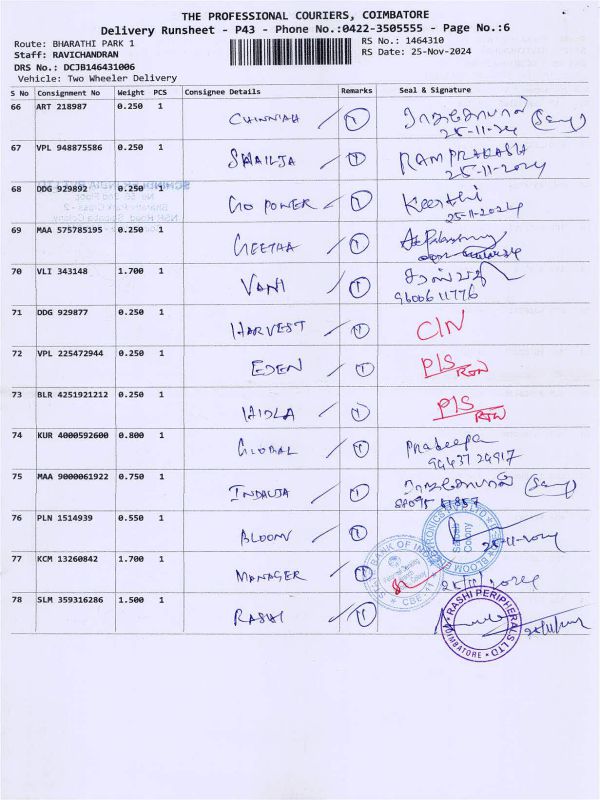 THE PROFESSIONAL COURIERS, COIMBATORE
Delivery Runsheet - P43 - Phone No.:0422-3505555 - Page No.:6
Route: BHARATHI PARK 1 RS No.: 1464310
Staff: RAVICHANDRAN RS Date: 25-Nov-2024
DRS No.: DCJB146431006
Vehicle: Two Wheeler Delivery
S No Consignment No Weight PCS Consignee Details Remarks Seal & Signature
66 ART 218987 0.250 1 CHINNIAH
25-11-24
67 VPL 948875586 0.250 1 SHAILJA RAMPRAKASH
25-11-2024
68 DDG 929892 0.250 1 GO POWER Keerthi
25-11-2024
69 MAA 575785195 0.250 1 GEETHA
70 VLI 343148 1.700 1 VANI
9600611776
71 DDG 929877 0.250 1 HARVEST C/N
72 VPL 225472944 0.250 1 EDEN P/S
RTN
73 BLR 4251921212 0.250 1 HIDLA P/S
RTN
74 KUR 4000592600 0.800 1 GLOBAL Pradeepa
9443724917
75 MAA 9000061922 0.750 1
76 PLN 1514939 0.550 1 BLOOM 25-11-2024
77 KCM 13260842 1.700 1 MANAGER 25/11/2024
78 SLM 359316286 1.500 1 RASHI
RASHI PERIPHERALS LTD
COIMBATORE